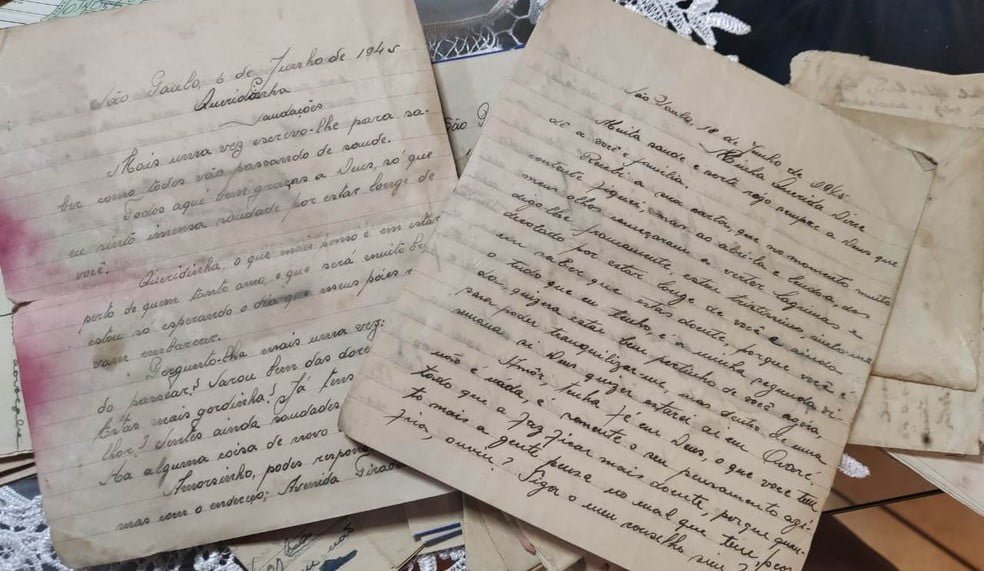 São Paulo, 6 de Junho de 1945
Queridinha
Saudações
Mais uma vez escrevo-lhe para sa-
ber como todos vão passando de saude.
Todos aqui bem graças a Deus, só que
eu sinto imensa saudade por estar longe de
você.
Queridinha, o que mais penso é em estar
perto de quem tanto amo, e que será muito
estou só esperando o dia que meus páes
vam embarcar.
Pergunto-lhe mais uma vez:
do passear? Sarou bem das dore
Estás mais gordinha? Já tens
lhor? Sentes ainda saudades
Ha alguma coisa de novo
Amorsinho, podes respon
mas com o endereço; Avenida Tirade
São P
São Paulo, 18 de Junho de 1945
Minha Querida Dirce
Muita saude e sorte rójo sempre a Deus que
dê a você e familia.
Recebi a sua carta, que no momento muito
contente fiquei, mas ao abril-a e lendo-a os
meus olhos começaram a verter lagrimas e
digo-lhe francamente, estou tristissimo, sinto-me
desolado por estar longe de você e ainda
em saber que estás doente, porque você é
o tudo que eu tenho, é a minha segunda vi-
da, quizera estar bem pertinho de você agora,
para poder tranquilizar-me, mas dentro de uma
semana si Deus quizer estarei ai em Avaré.
Amôr, tenha fé em Deus, o que você tem
não é nada, é somente o seu pensamento
todo que a faz ficar mais doente, porque quan-
to mais a gente pensa no mal que tem, peor
fica, ouviu? Siga o meu conselho sim?